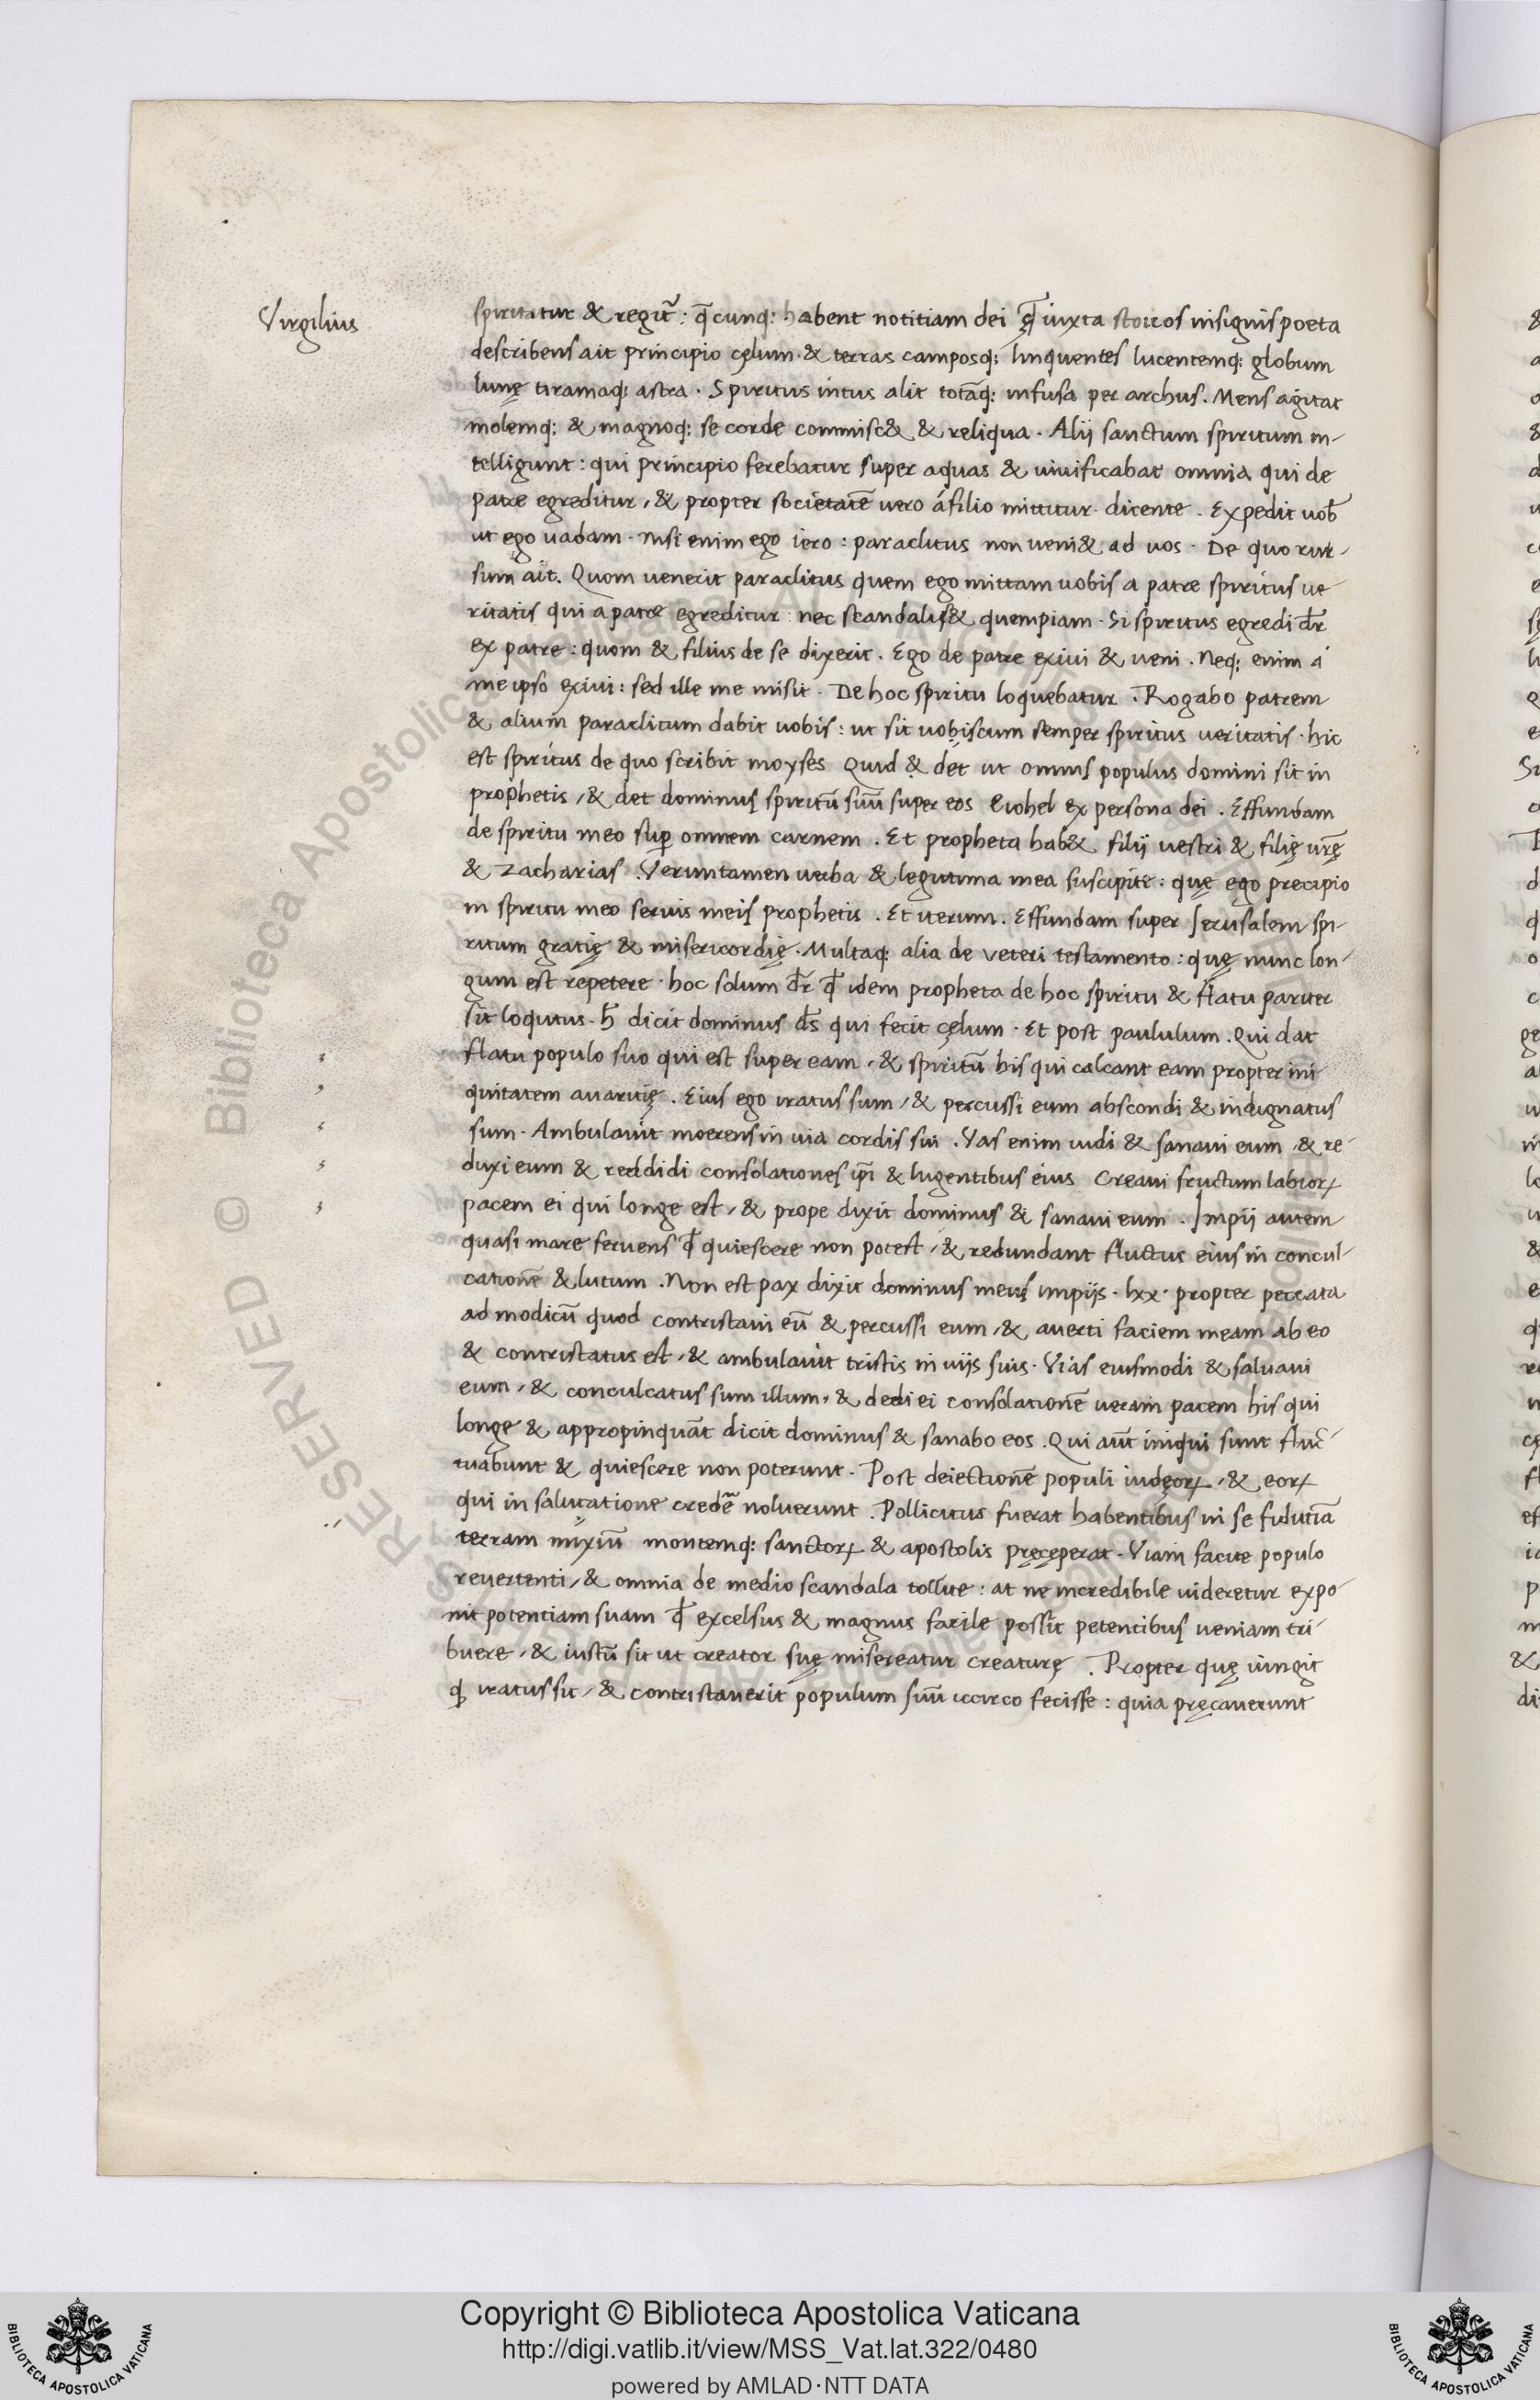 Virgilius
spiritatur & regit̃: q̃cunq; habent notitiam dei q̃ iuxta stoicos insignis poeta
describens ait principio cęlum & terras camposq; linquentes lucentemq; globum
lunę tiramaq; astra. Spiritus intus alit totãq; infusa per archus. Mens agitat
molemq; & magnoq; se corde commisc& & reliqua. Alij sanctum spiritum in-
telligunt: qui principio ferebatur super aquas & uiuificabat omnia qui de
patre egreditur, & propter societatẽ uero á filio mittitur. dicente. Expedit uob̃
ut ego uadam. Nisi enim ego iero: paraclitus non ueni& ad uos. De quo rur-
sum ait. Quom uenerit paraclitus quem ego mittam uobis a patre spiritus ue
ritatis qui a patre egreditur nec scandalis& quempiam. Si spiritus egredi dr̃
ex patre: quom & filius de se dixerit. Ego de patre exiui & ueni. Neq; enim á
me ipso exiui: sed ille me misit. De hoc spiritu loquebatur. Rogabo patrem
& alium paraclitum dabit uobis: ut sit uobiscum semper spiritus ueritatis. hic
est spiritus de quo scribit moyses Quid & det ut omnis populus domini sit in
prophetis, & det dominus spiritũ suũ super eos Eiohel ex persona dei. Effundam
de spiritu meo sup̱ omnem carnem. Et propheta hab& filij uestri & filię ur̃ę
& Zacharias. Veruntamen uerba & legitima mea suscipite: quę ego precipio
in spiritu meo seruis meis prophetis. Et iterum. Effundam super Jerusalem spi-
ritum gratię & misericordię. Multaq; alia de veteri testamento: quę nunc lon-
gum est repetere. hoc solum dr̃ qđ idem propheta de hoc spiritu & flatu pariter
sit loqutus. h̃ dicit dominus ds̃ qui fecit cęlum. Et post paululum. Qui dat
flatu populo suo qui est super eam, & spiritũ his qui calcant eam propter ini
quitatem auaritię. Eius ego iratus sum, & percussi eum abscondi & indignatus
sum. Ambulauit moerens in uia cordis sui. Vas enim uidi & sanaui eum, & re-
duxi eum & reddidi consolationes ip̃i & lugentibus eius Creaui fructum labiorꝝ
pacem ei qui longe est, & prope dixit dominus & sanaui eum. Impij autem
quasi mare feruens qđ quiescere non potest, & redundant fluctus eius in concul-
cationẽ & lutum. Non est pax dixit dominus meus impijs. lxx. propter peccata
ad modicũ quod contristaui eũ & percussi eum, & auerti faciem meam ab eo
& contristatus est, & ambulauit tristis in uijs suis. Vias eiusmodi & saluaui
eum, & conculcatus sum illum, & dedi ei consolationẽ ueram pacem his qui
longe & appropinquãt dicit dominus & sanabo eos. Qui aut̃ iniqui sunt fluc-
tuabunt & quiescere non poterunt. Post deiectionẽ populi iudęorꝝ, & eorꝝ
qui in salutatione credẽ noluerunt. Pollicitus fuerat habentibus in se fidutiã
terram montemq; sanctorꝝ & apostolis pręceperat. Viam facite populo
reuertenti, & omnia de medio scandala tollite: at ne incredibile uideretur expo-
nit potentiam suam qđ excelsus & magnus facile possit petentibus ueniam tri-
buere, & iustũ sit ut creator suę misereatur creaturę. Propter quę iungit
q̃ iratus sit, & contristauerit populum suũ iccirco fecisse: quia pręcauerunt
RESERVED © Biblioteca Apostolica Vaticana
Copyright © Biblioteca Apostolica Vaticana
http://digi.vatlib.it/view/MSS_Vat.lat.322/0480
powered by AMLAD·NTT DATA
BIBLIOTECA APOSTOLICA VATICANA
BIBLIOTECA APOSTOLICA VATICANA